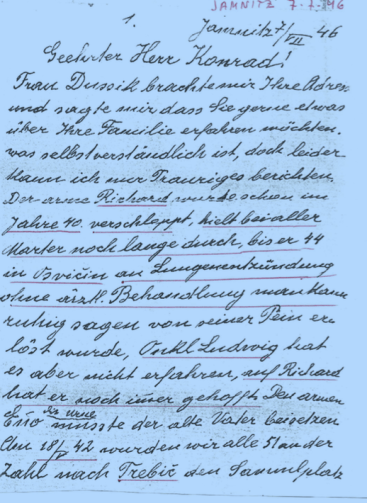 JAMNITZ 7.7.46
1.
Jamnitz 7/VII 46
Geehrter Herr Konrad!
Frau Dussik brachte mir Ihre Adress
und sagte mir dass Sie gerne etwas
über Ihre Familie erfahren möchten.
was selbstverständlich ist, doch leider
kann ich nur Trauriges berichten.
Der arme Richard, wurde schon im
Jahre 40. verschleppt, hielt bei aller
Marter noch lange durch, bis er 44
in Osvičin an Lungenentzündung
ohne ärztl. Behandlung man kann
ruhig sagen von seiner Pein er
löst wurde, Onkl Ludwig hat
es aber nicht erfahren, auf Richard
hat er noch imer gehofft. Den armen
die Urne
musste der alte Vater beisetzen
Am 18/V 42 wurden wir alle 51 an der
Zahl nach Trebič den Sammlplatz